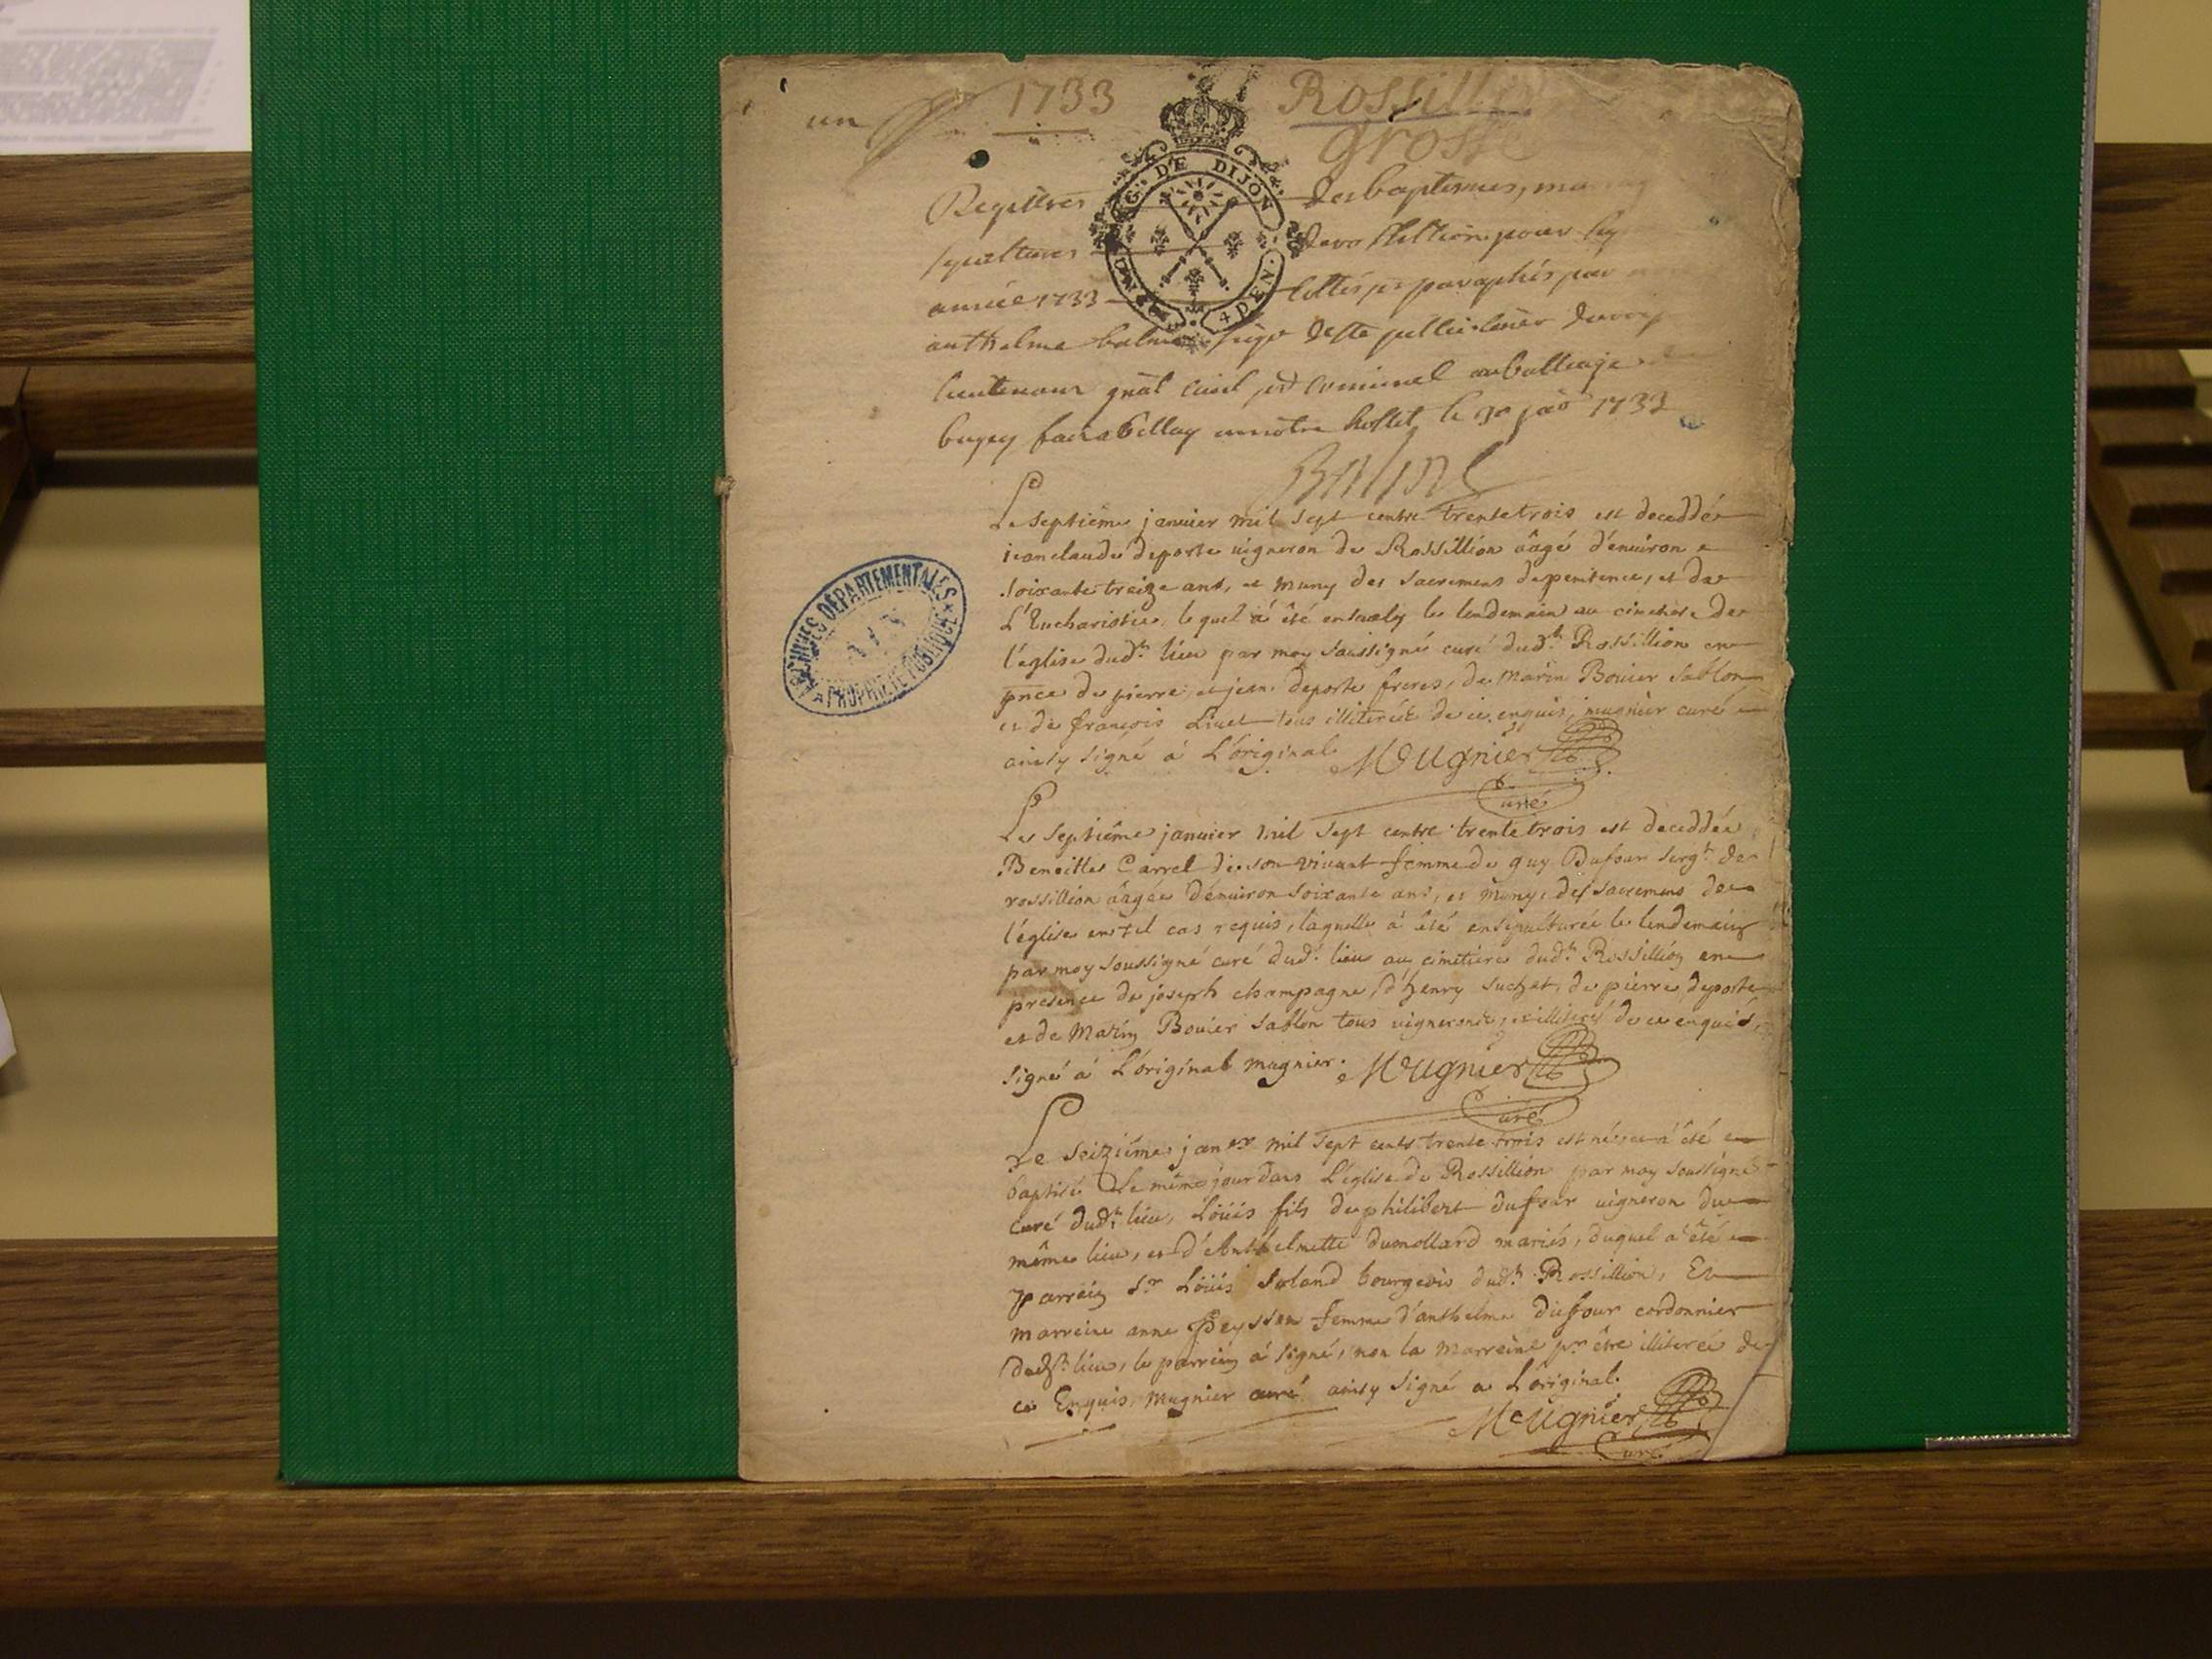 un
1733 Rossill
grosse
G. DE DIJON
4 DEN.
Registres des baptesmes, ma
sepultures de rossillion pour
année 1733 cottés et paraphés par
anthelme balme
lieutenant gnãl civil et criminel au balliage
bugey 1733
Balme
Le septiéme janvier mil sept centz trente trois est deceddé
jean claude deporte vigneron de Rossillion âagé d'environ
soixante treize ans, et muny des sacremens de penitence, et de
L'Eucharistie, lequel à êté le lendemain au cimetiere de
l'église dudt. lieu par moy soussigné curé dudt. Rossillion en
pnce de pierre, et jean deporte freres, de Marin Bouier Sablon
et de françois Livet tous illiterés de ce enquis, mugnier curé
ainsy signé à L'original. Meugnier
Curé
Le septiême janvier mil sept centz trente trois est deceddée
Benoitte Carrel de son vivant femme de guy Dufour sergt. de
rossillion âagée d'environ soixante ans, et muny des sacremens de
l'église en tel cas requis, laquelle à êté ensepulturée le lendemain
par moy soussigné curé dudt. lieu au cimetiere dudt. Rossillion en
presence de joseph champagne, d'henry suchet, de pierre deporte
et de Marin Bouier Sablon tous vignerons, et illiterés de ce enquis,
signé à L'original mugnier. Meugnier
Curé
Le seiziéme janer mil sept cents trente trois est né, et à êté
baptisé le même jour dans L'église de Rossillion par moy soussigné
curé dudt. lieu, Loüis fils de philibert dufour vigneron du
même lieu, et d'Anthelmette dumollard mariés, duquel à êté
parrein sr. Loüis bourgeois dudt. Rossillion, Et
marreine anne Peysson femme d'anthelme duffour cordonnier
dudt. lieu, le parrein à signé, non la marreine pr. être illiterée de
ce Enquis, mugnier curé ainsy signé a L'original.
Meugnier
Curé
ARCHIVES DÉPARTEMENTALES
AIN
PROPRIÉTÉ PUBLIQUE